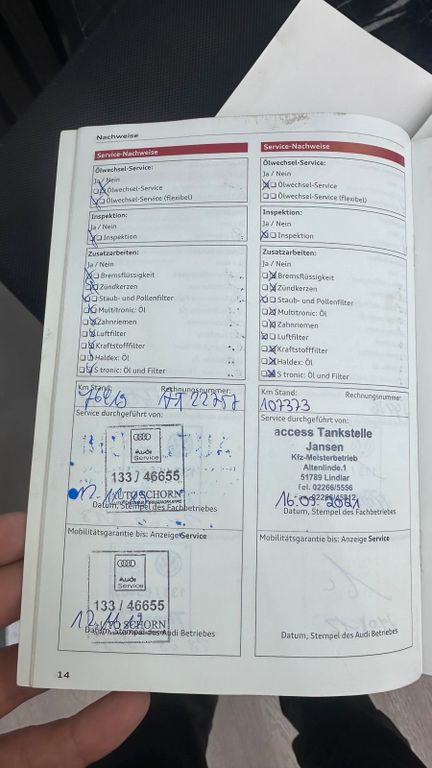 Nachweise
Service-Nachweise
Ölwechsel-Service:
Ja / Nein
Ölwechsel-Service
Ölwechsel-Service (flexibel)
Inspektion:
Ja / Nein
Inspektion
Zusatzarbeiten:
Ja / Nein
Bremsflüssigkeit
Zündkerzen
Staub- und Pollenfilter
Multitronic: Öl
Zahnriemen
Luftfilter
Kraftstofffilter
Haldex: Öl
S tronic: Öl und Filter
Km Stand:
Rechnungsnummer:
Service durchgeführt von:
Audi
Service
133 / 46655
AUTO SCHORN
Datum, Stempel des Fachbetriebes
Mobilitätsgarantie bis: Anzeige Service
Audi
Service
133 / 46655
AUTO SCHORN
Datum, Stempel des Audi Betriebes
14
Service-Nachweise
Ölwechsel-Service:
Ja / Nein
Ölwechsel-Service
Ölwechsel-Service (flexibel)
Inspektion:
Ja / Nein
Inspektion
Zusatzarbeiten:
Ja / Nein
Bremsflüssigkeit
Zündkerzen
Staub- und Pollenfilter
Multitronic: Öl
Zahnriemen
Luftfilter
Kraftstofffilter
Haldex: Öl
S tronic: Öl und Filter
Km Stand:
Rechnungsnummer:
107373
Service durchgeführt von:
access Tankstelle
Jansen
Kfz-Meisterbetrieb
Altenlinde.1
51789 Lindlar
Tel. 02266/5556
16.09.2021
Datum, Stempel des Fachbetriebes
Mobilitätsgarantie bis: Anzeige Service
Datum, Stempel des Audi Betriebes